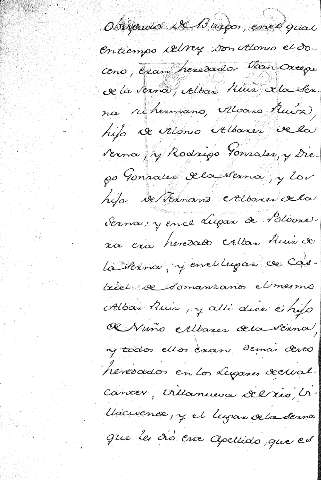 Obispado de Burgos, en el qual
en tiempo del rey Don Alonso el do
ceno, eran heredados Juan Ortega
de la Serna, Albar Ruiz de la Ser
na su hermano, Alvaro Ruiz,
hijo de Alonso Albarez de la
Serna, y Rodrigo Gonzalez, y Die
go Gonzalez de la Serna, y los
hijos de Fernand Albarez de la
Serna; y en el Lugar de
era heredado Albar Ruiz de
la Serna, y en el lugar de Cas
triel de Somanzano el mesmo
Albar Ruiz, y alli dice es hijo
de Nuño Albarez de la Serna,
y todos ellos eran demas de eso
heredados en los Lugares de
Villanueva del Rio, Vi
y el lugar de la Serna
que les dió ese Apellido, que es